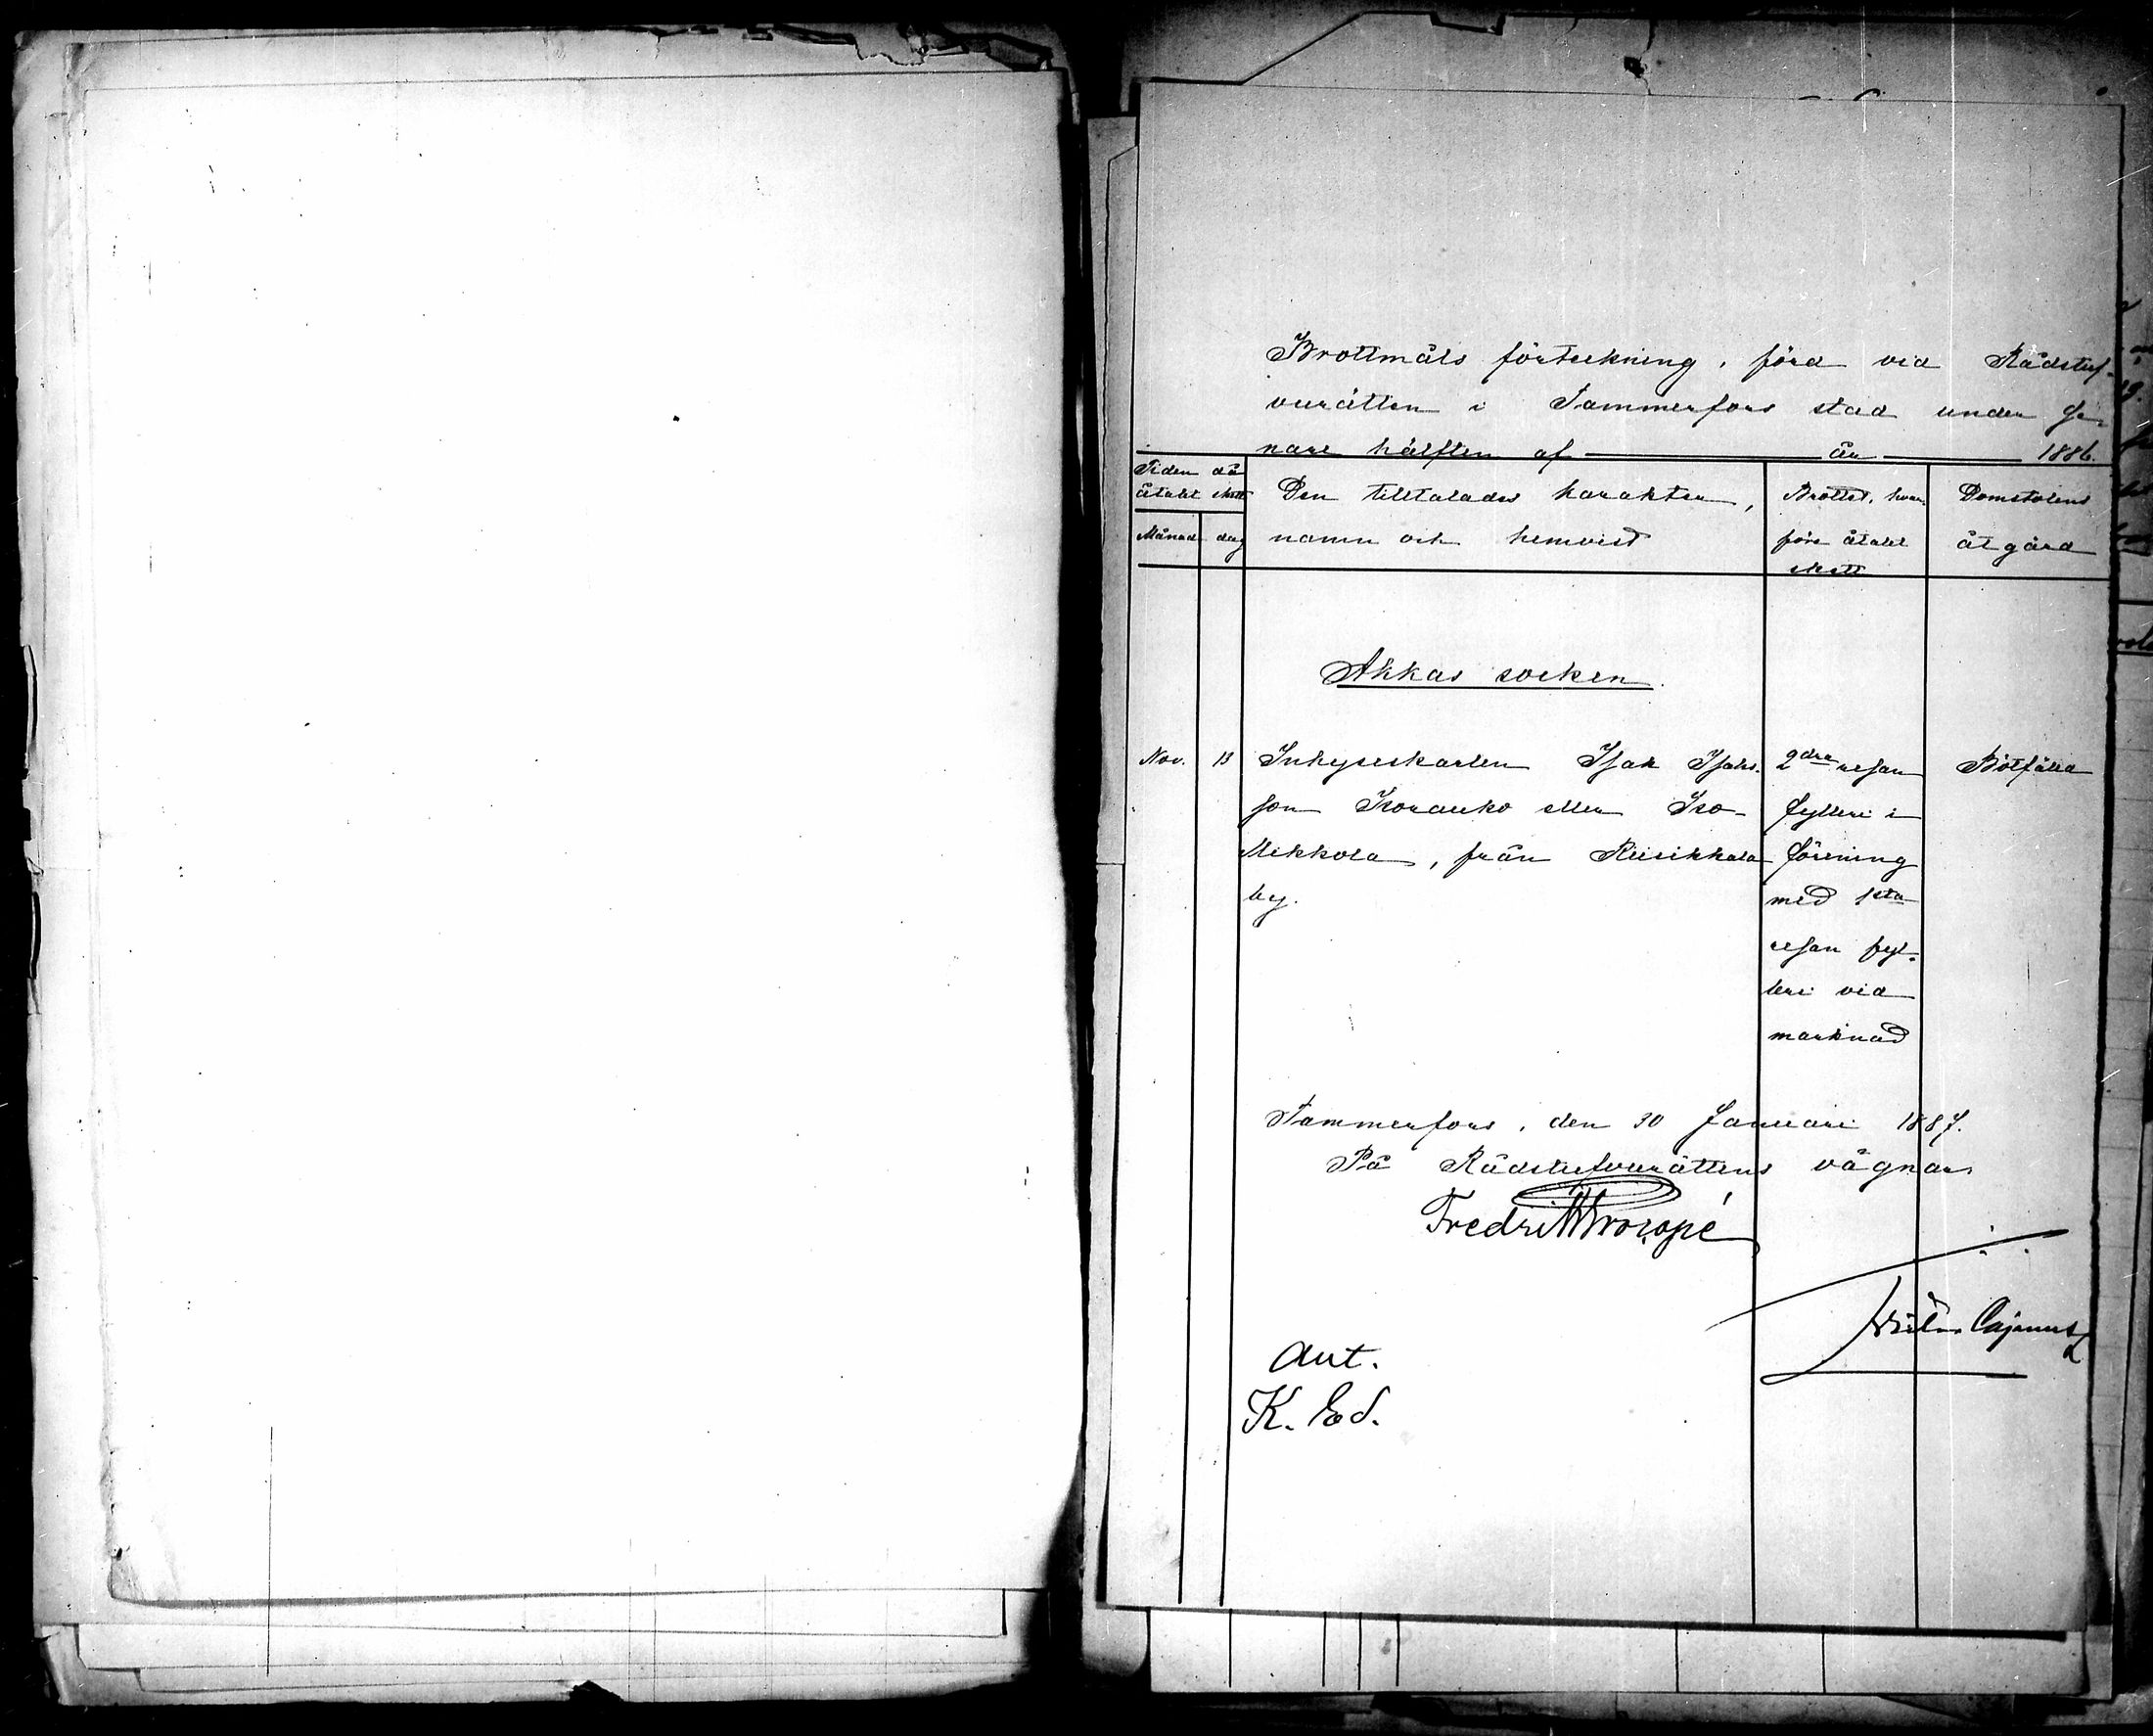 Brottmåls förteckning, förd vid Rådstuf-
vurätten i Tammerfors stad under se-
nare hälften af år 1886.
Tiden då
åtalet skett
Månad dag
Den tilltalades karakter,
namn och hemvist
Brottet, hvar-
före åtalet
skett
Domstolens
åtgärd
Akkas socken.
Nov. 13 Inhyseskarlen Isak Isaks- 2dra resan Bötfälld
son Isorauko eller Iso- fylleri i
Mikkola, från Riisikkala förening
by. med 1sta
resan fyl-
leri vid
marknad
Tammerfors, den 30 Januari 1887.
På Rådstufvurättens vägnar
Fredrik Procopé
Cajanus
Ant.
K. Ed.